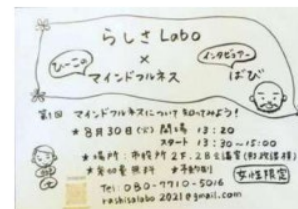 らしさLabo
×
ひーこの
マインドフルネス
インタビュアー
ばび
第1回 マインドフルネスについて知ってみよう!
★8月30日(火) 開場 13:20
スタート 13:30~15:00
★場所:市役所2F.2B会議室
★参加費無料 ★予約制
女性限定
Tel:080-7710-5016
rashisalabo2021@gmail.com